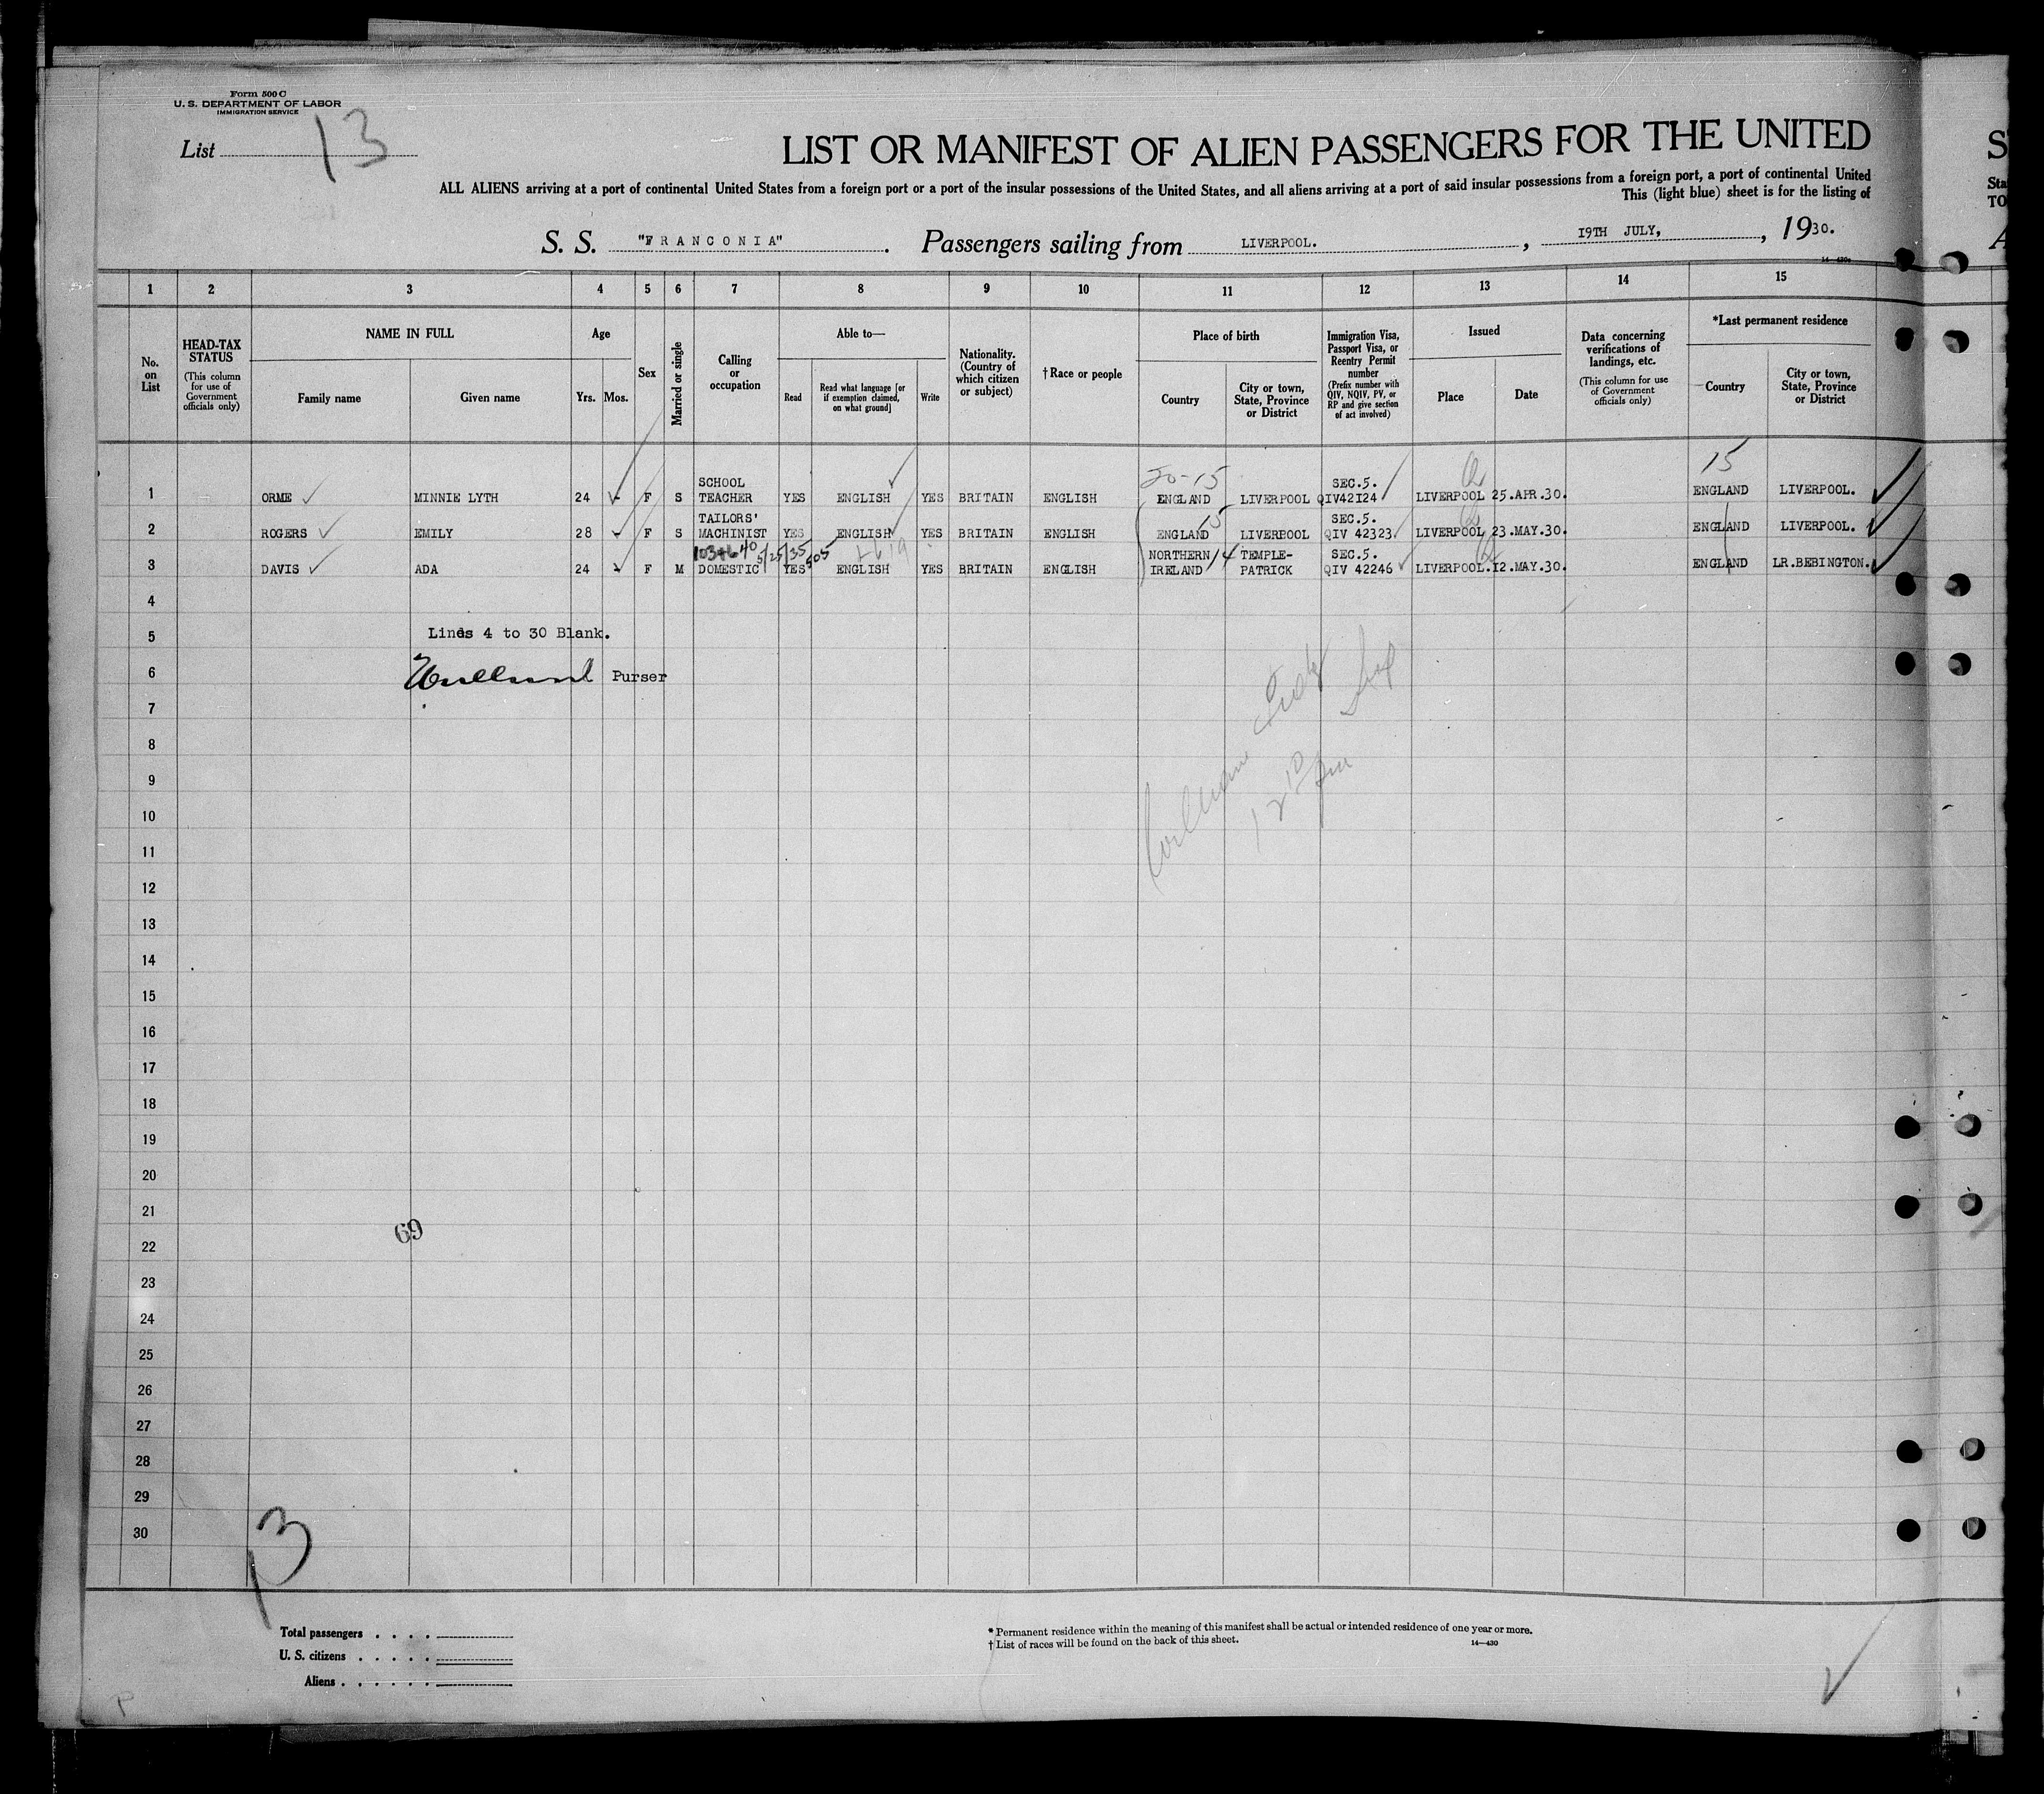 Form 500 C
U. S. DEPARTMENT OF LABOR
IMMIGRATION SERVICE
List 13
LIST OR MANIFEST OF ALIEN PASSENGERS FOR THE UNITED
ALL ALIENS arriving at a port of continental United States from a foreign port or a port of the insular possessions of the United States, and all aliens arriving at a port of said insular possessions from a foreign port, a port of continental United
This (light blue) sheet is for the listing of
S. S. "FRANCONIA". Passengers sailing from LIVERPOOL. , 19TH JULY, , 1930.
14—430
1 2 3 4 5 6 7 8 9 10 11 12 13 14 15
No. on List
HEAD-TAX STATUS (This column for use of Government officials only)
NAME IN FULL
Family name
Given name
Age
Yrs. Mos.
Sex
Married or single
Calling or occupation
Able to—
Read
Read what language [or if exemption claimed, on what ground]
Write
Nationality. (Country of which citizen or subject)
†Race or people
Place of birth
Country
City or town, State, Province or District
Immigration Visa, Passport Visa, or Reentry Permit number (Prefix number with QIV, NQIV, PV, or RP and give section of act involved)
Issued
Place
Date
Data concerning verifications of landings, etc. (This column for use of Government officials only)
*Last permanent residence
Country
City or town, State, Province or District
20-15 15
SCHOOL SEC.5.
1 ORME MINNIE LYTH 24 - F S TEACHER YES ENGLISH YES BRITAIN ENGLISH ENGLAND LIVERPOOL QIV42I24 LIVERPOOL 25.APR.30. ENGLAND LIVERPOOL.
TAILORS' 15 SEC.5.
2 ROGERS EMILY 28 - F S MACHINIST YES ENGLISH YES BRITAIN ENGLISH ENGLAND LIVERPOOL QIV 42323 LIVERPOOL 23.MAY.30. ENGLAND LIVERPOOL.
5/25/35 NORTHERN 14 TEMPLE- SEC.5.
3 DAVIS ADA 24 - F M DOMESTIC YES ENGLISH YES BRITAIN ENGLISH IRELAND PATRICK QIV 42246 LIVERPOOL. I2.MAY.30. ENGLAND LR.BEBINGTON.
4
5 Lines 4 to 30 Blank.
6 Purser
7
8
9
10
11
12
13
14
15
16
17
18
19
20
21
69
22
23
24
25
26
27
28
29
30
13
Total passengers
U. S. citizens
Aliens
* Permanent residence within the meaning of this manifest shall be actual or intended residence of one year or more.
† List of races will be found on the back of this sheet.
14—430